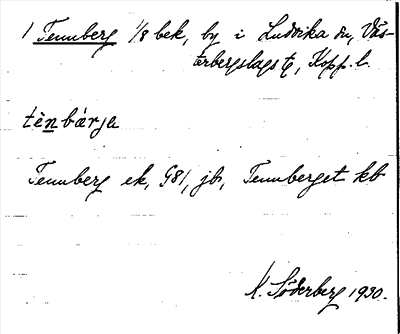 1 Tennberg 1/8 bek, by i Ludvika sn, Väs-
terbergslags tg, Kopp. l.
tènbárja
Tennberg ek, G81, jb, Tennberget kb
K. Söderberg 1930.